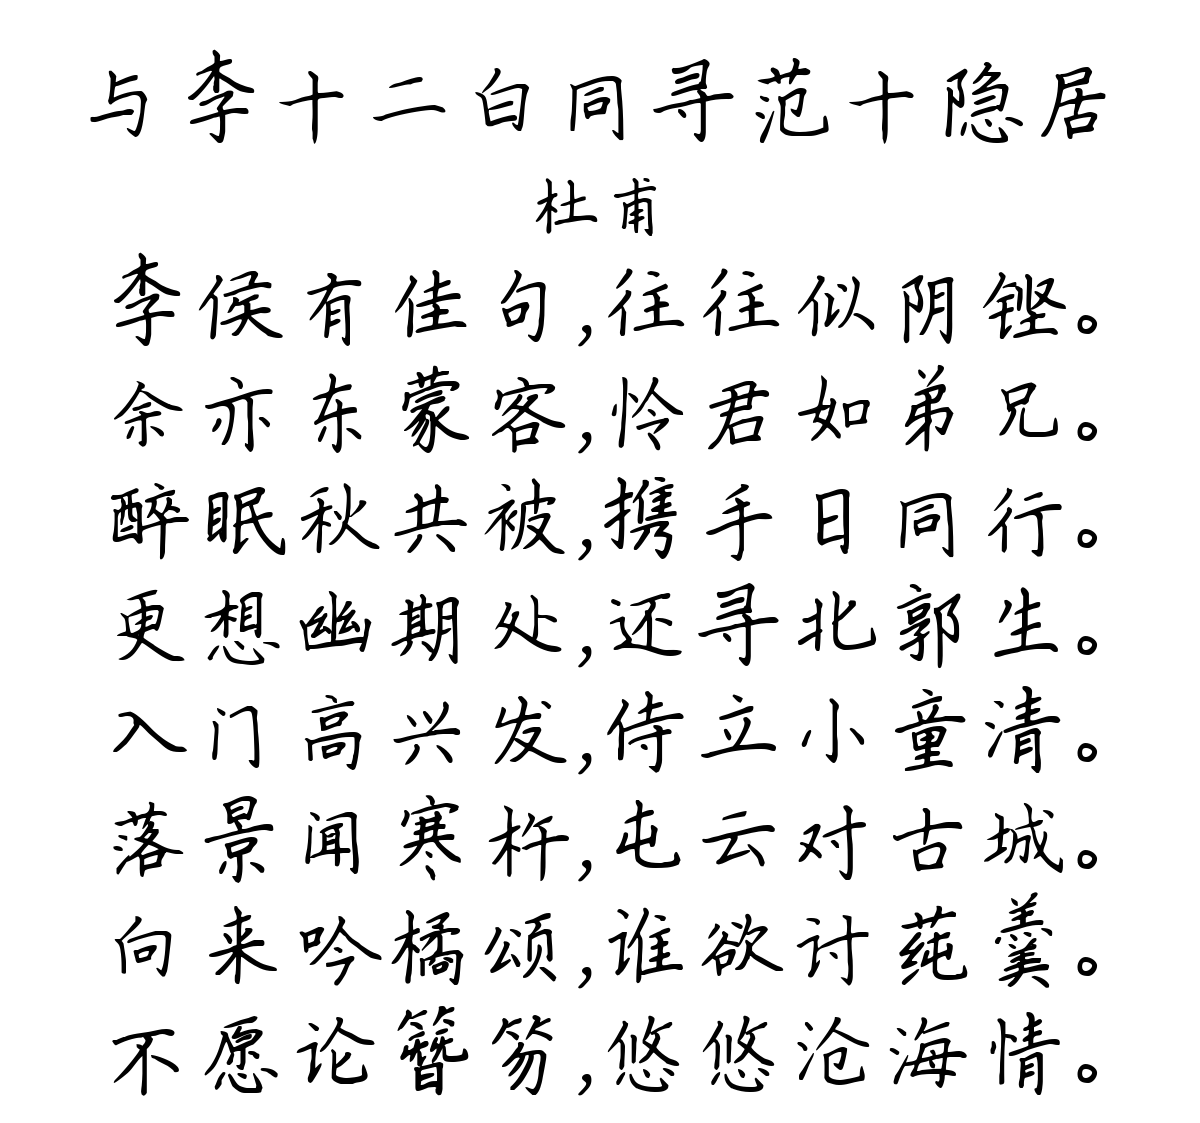 与李十二白同寻范十隐居
杜甫
李侯有佳句,往往似阴铿。
余亦东蒙客,怜君如弟兄。
醉眠秋共被,携手日同行。
更想幽期处,还寻北郭生。
入门高兴发,侍立小童清。
落景闻寒杵,屯云对古城。
向来吟橘颂,谁欲讨莼羹。
不愿论簪笏,悠悠沧海情。